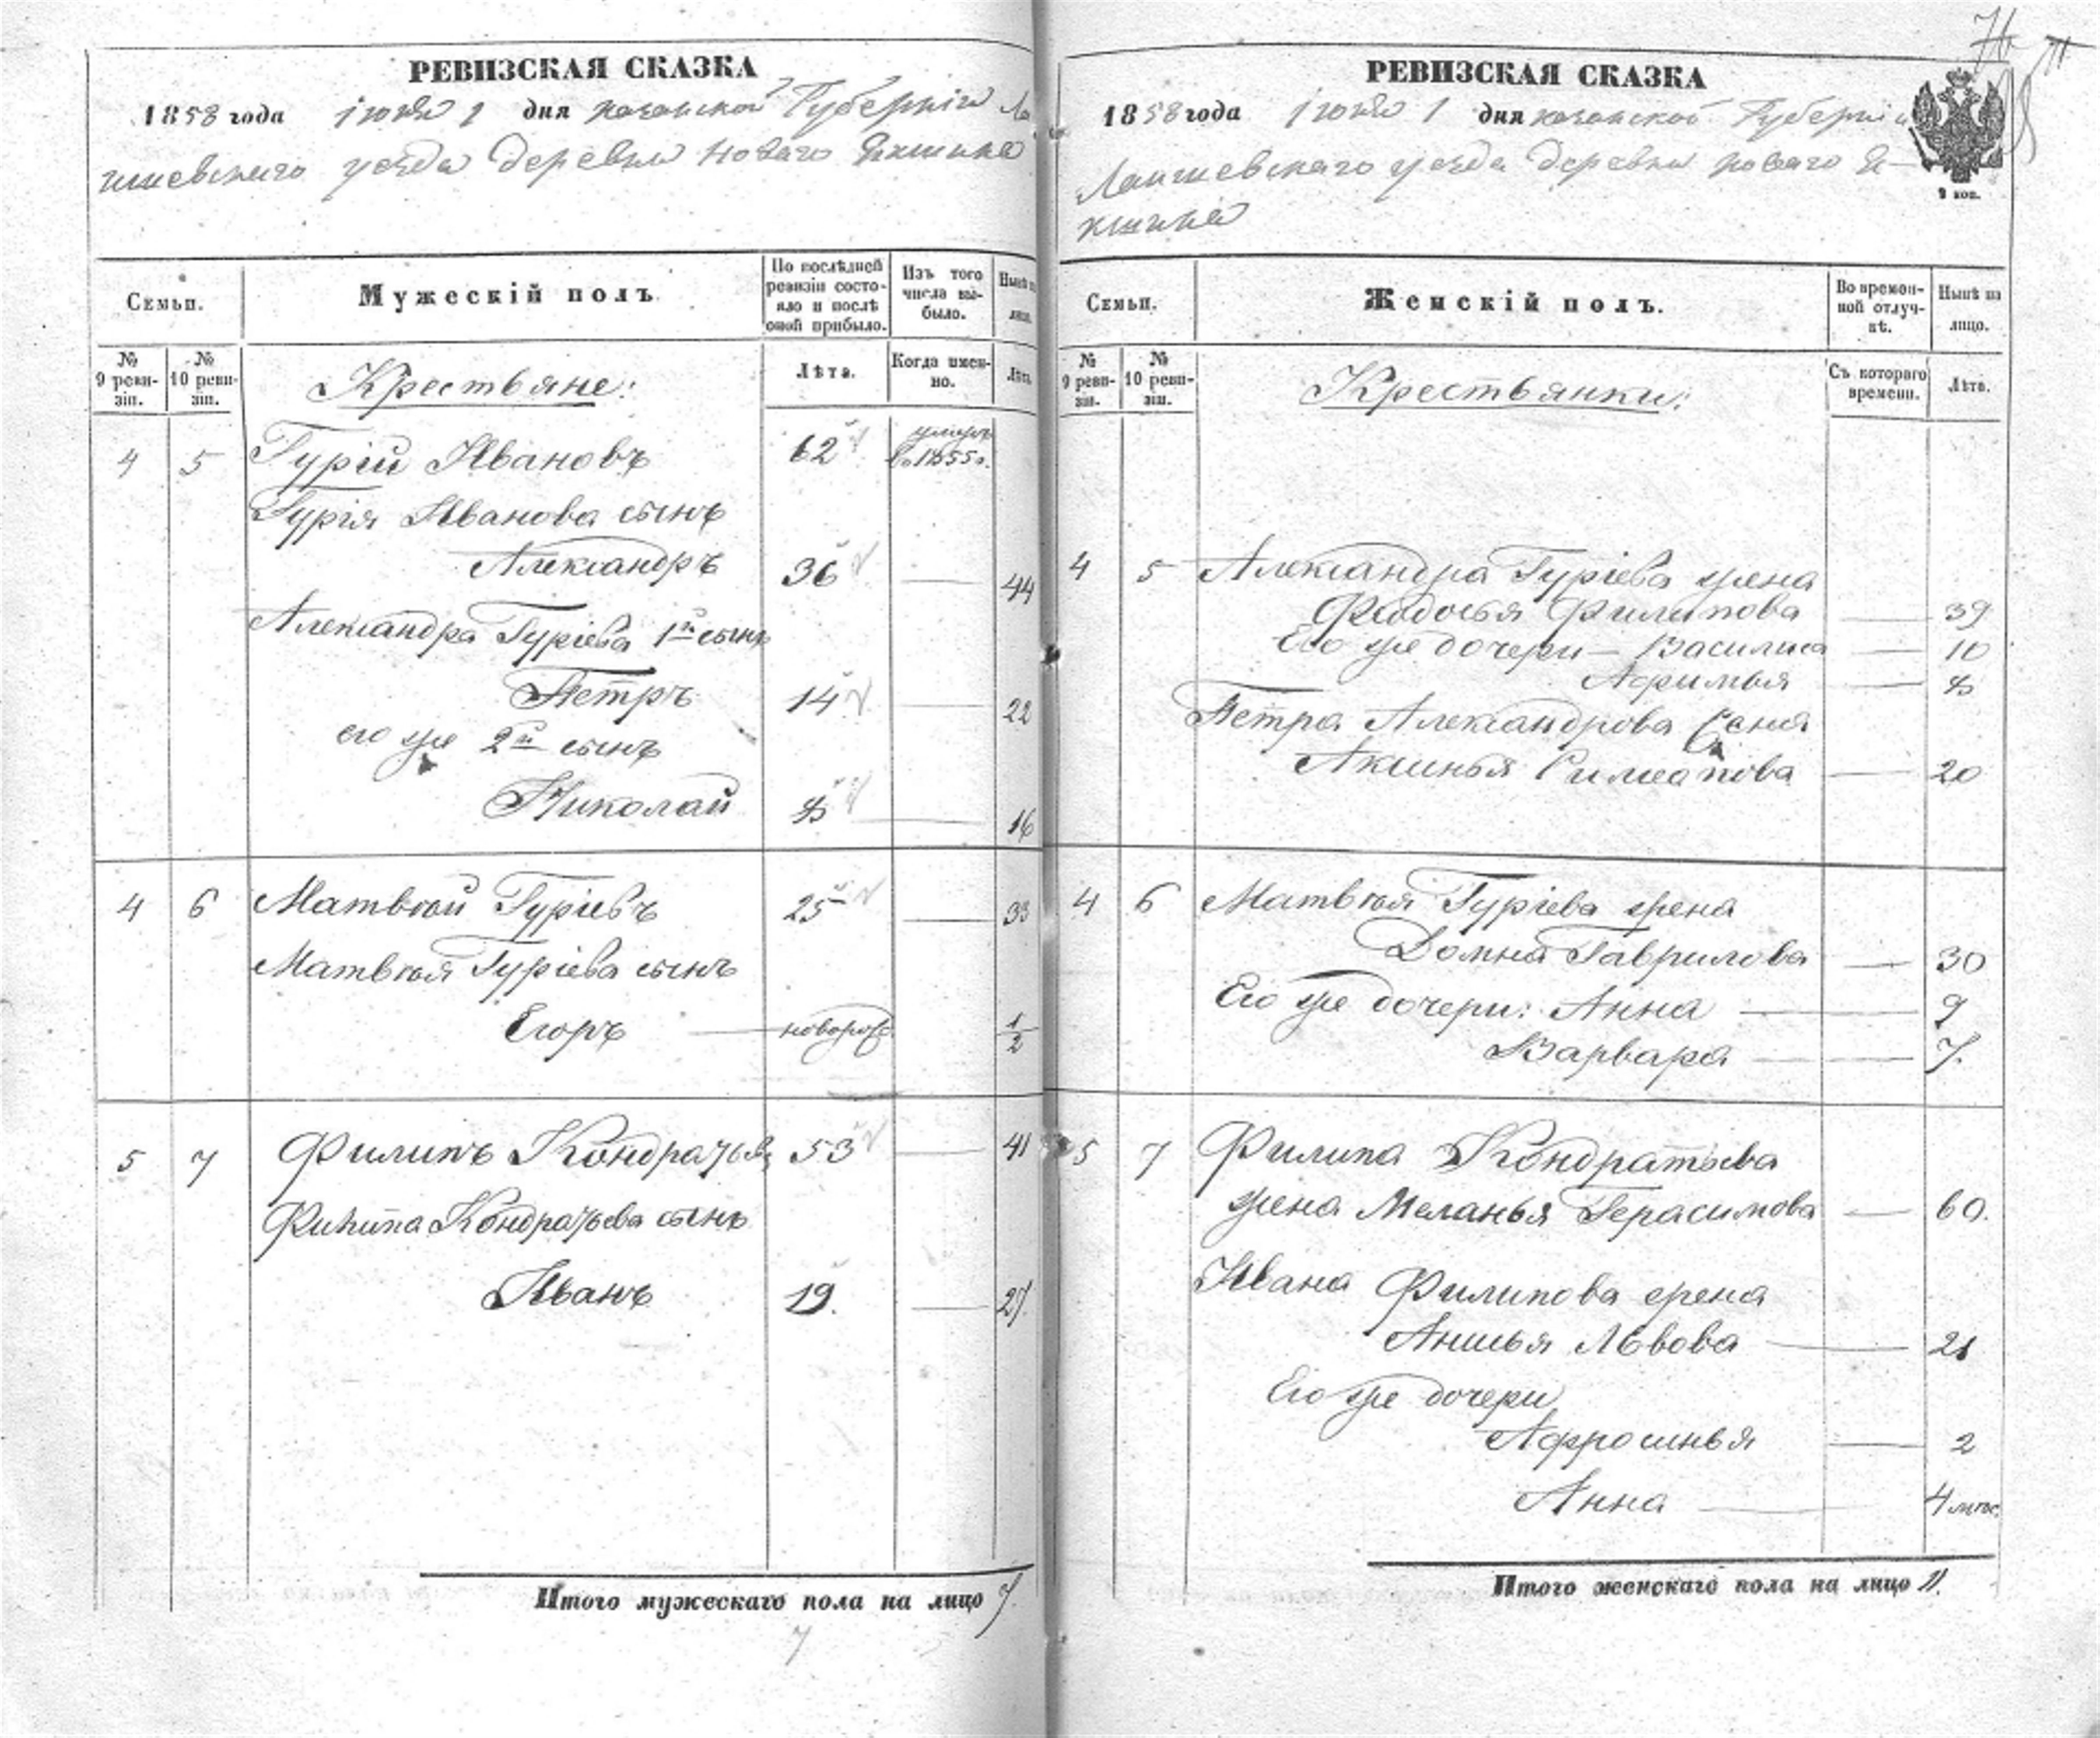 РЕВИЗСКАЯ СКАЗКА
1858 года іюня 1 дня казанской Губерніи Ла
ишевскаго уезда деревни Новаго
Семьи.
Мужескій полъ
По послѣдней ревизіи состояло и послѣ оной прибыло.
Изъ того числа выбыло.
Нынѣ на лицо.
№ 9 ревизіи.
№ 10 ревизіи.
Крестьяне:
Лѣта.
Когда именно.
Лѣта.
4 5 Гурій Ивановъ 62 умеръ в 1855 г.
Гурія Иванова сынъ
Александръ 36 — 44
Александра Гуріева 1й сынъ
Петръ 14 — 22
его же 2й сынъ
Николай 8 — 16
4 6 Матвѣй Гуріевъ 25 — 33
Матвѣя Гуріева сынъ
Егоръ — новорож 1/2
5 7 Филипъ Кондратьевъ 53 — 41
Филипа Кондратьева сынъ
Иванъ 19. — 27.
Итого мужескаго пола на лицо 7.
7
РЕВИЗСКАЯ СКАЗКА
1858 года іюня 1 дня казанской Губерніи
Лаишевскаго уезда деревни новаго
Семьи.
Женскій полъ.
Во временной отлучкѣ.
Нынѣ на лицо.
№ 9 ревизіи.
№ 10 ревизіи.
Крестьянки:
Съ котораго времени.
Лѣта.
4 5 Александра Гуріева жена
Федосья Филипова — 39
Его же дочери — Василиса — 10
Афимья — 8
Петра Александрова жена
Аксинья — 20
4 6 Матвѣя Гуріева жена
Домна Гаврилова — 30
Его же дочери: Анна — 9
Варвара — 7.
5 7 Филипа Кондратьева
жена Меланья Герасимова — 60.
Ивана Филипова жена
Анисья Львова — 21
Его же дочери
Афросинья — 2
Анна — 4 мѣс.
Итого женскаго пола на лицо 11.